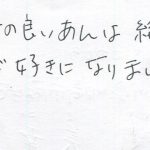 の良いあんは
好きになりまし